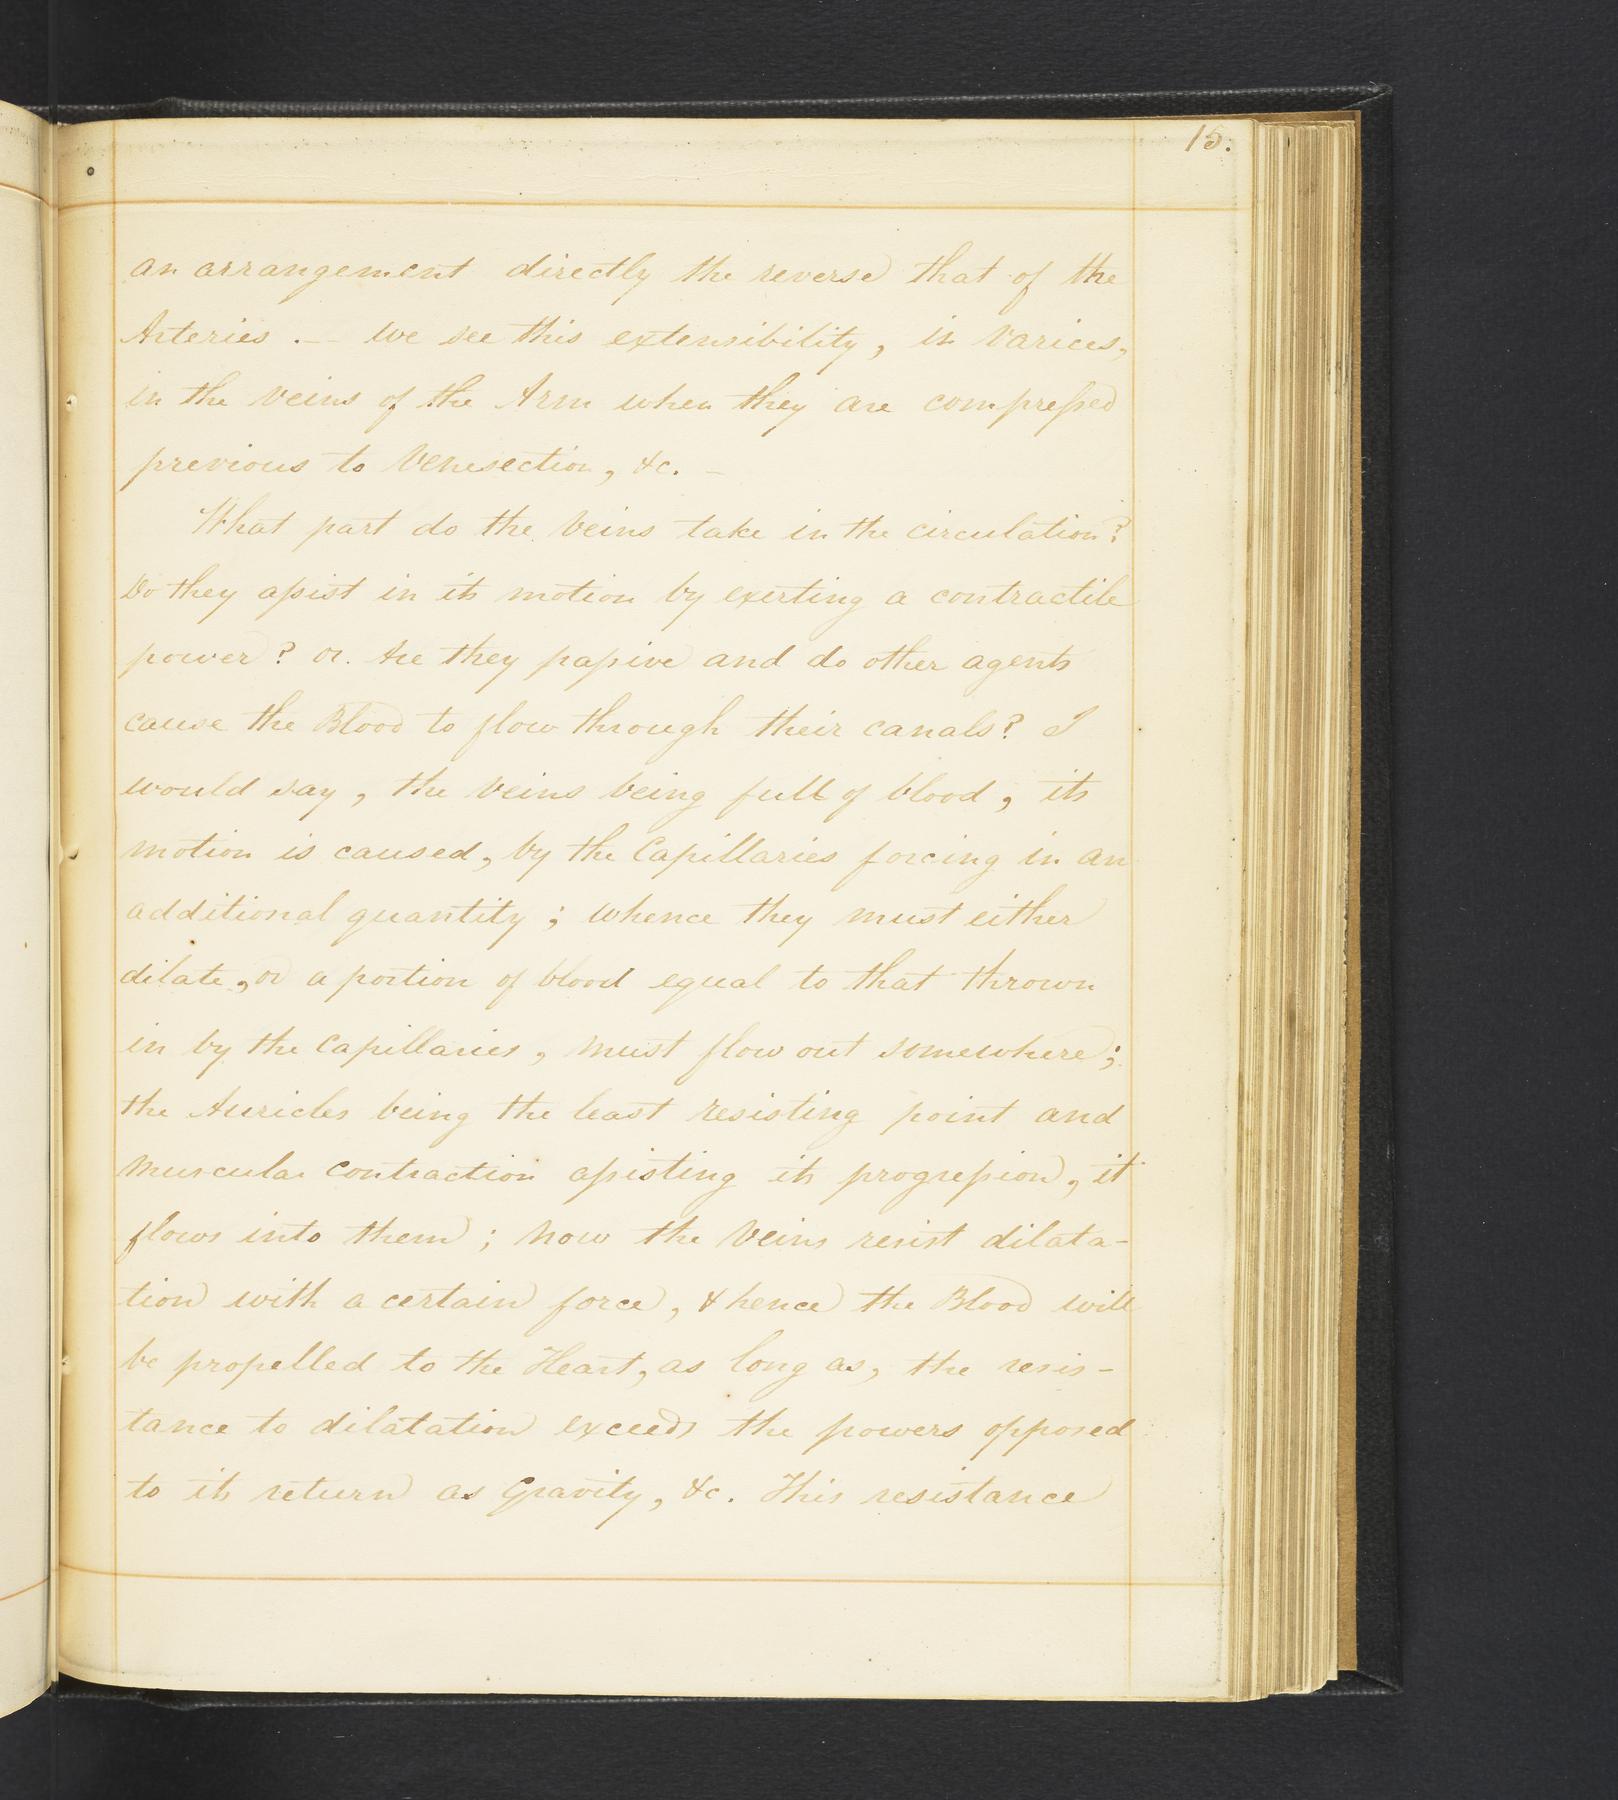 15.
an arrangement directly the reverse that of the
Arteries . — we see this extensibility, in varices,
in the veins of the Arm when they are compressed
previous to Venesection, &c. –
What part do the veins take in the circulation?
Do they assist in its motion by exerting a contractile
power? or. Are they passive and do other agents
cause the Blood to flow through their canals? I
would say, the veins being full of blood, its
motion is caused, by the Capillaries forcing in an
additional quantity; whence they must either
dilate, or a portion of blood equal to that thrown
in by the Capillaries, must flow out somewhere;
the Auricles being the least resisting point and
muscular contraction assisting its progression, it
flows into them; now the Veins resist dilata-
tion with a certain force, & hence the Blood will
be propelled to the Heart, as long as, the resis-
tance to dilatation exceeds the powers opposed
to its return as Gravity, &c. This resistance